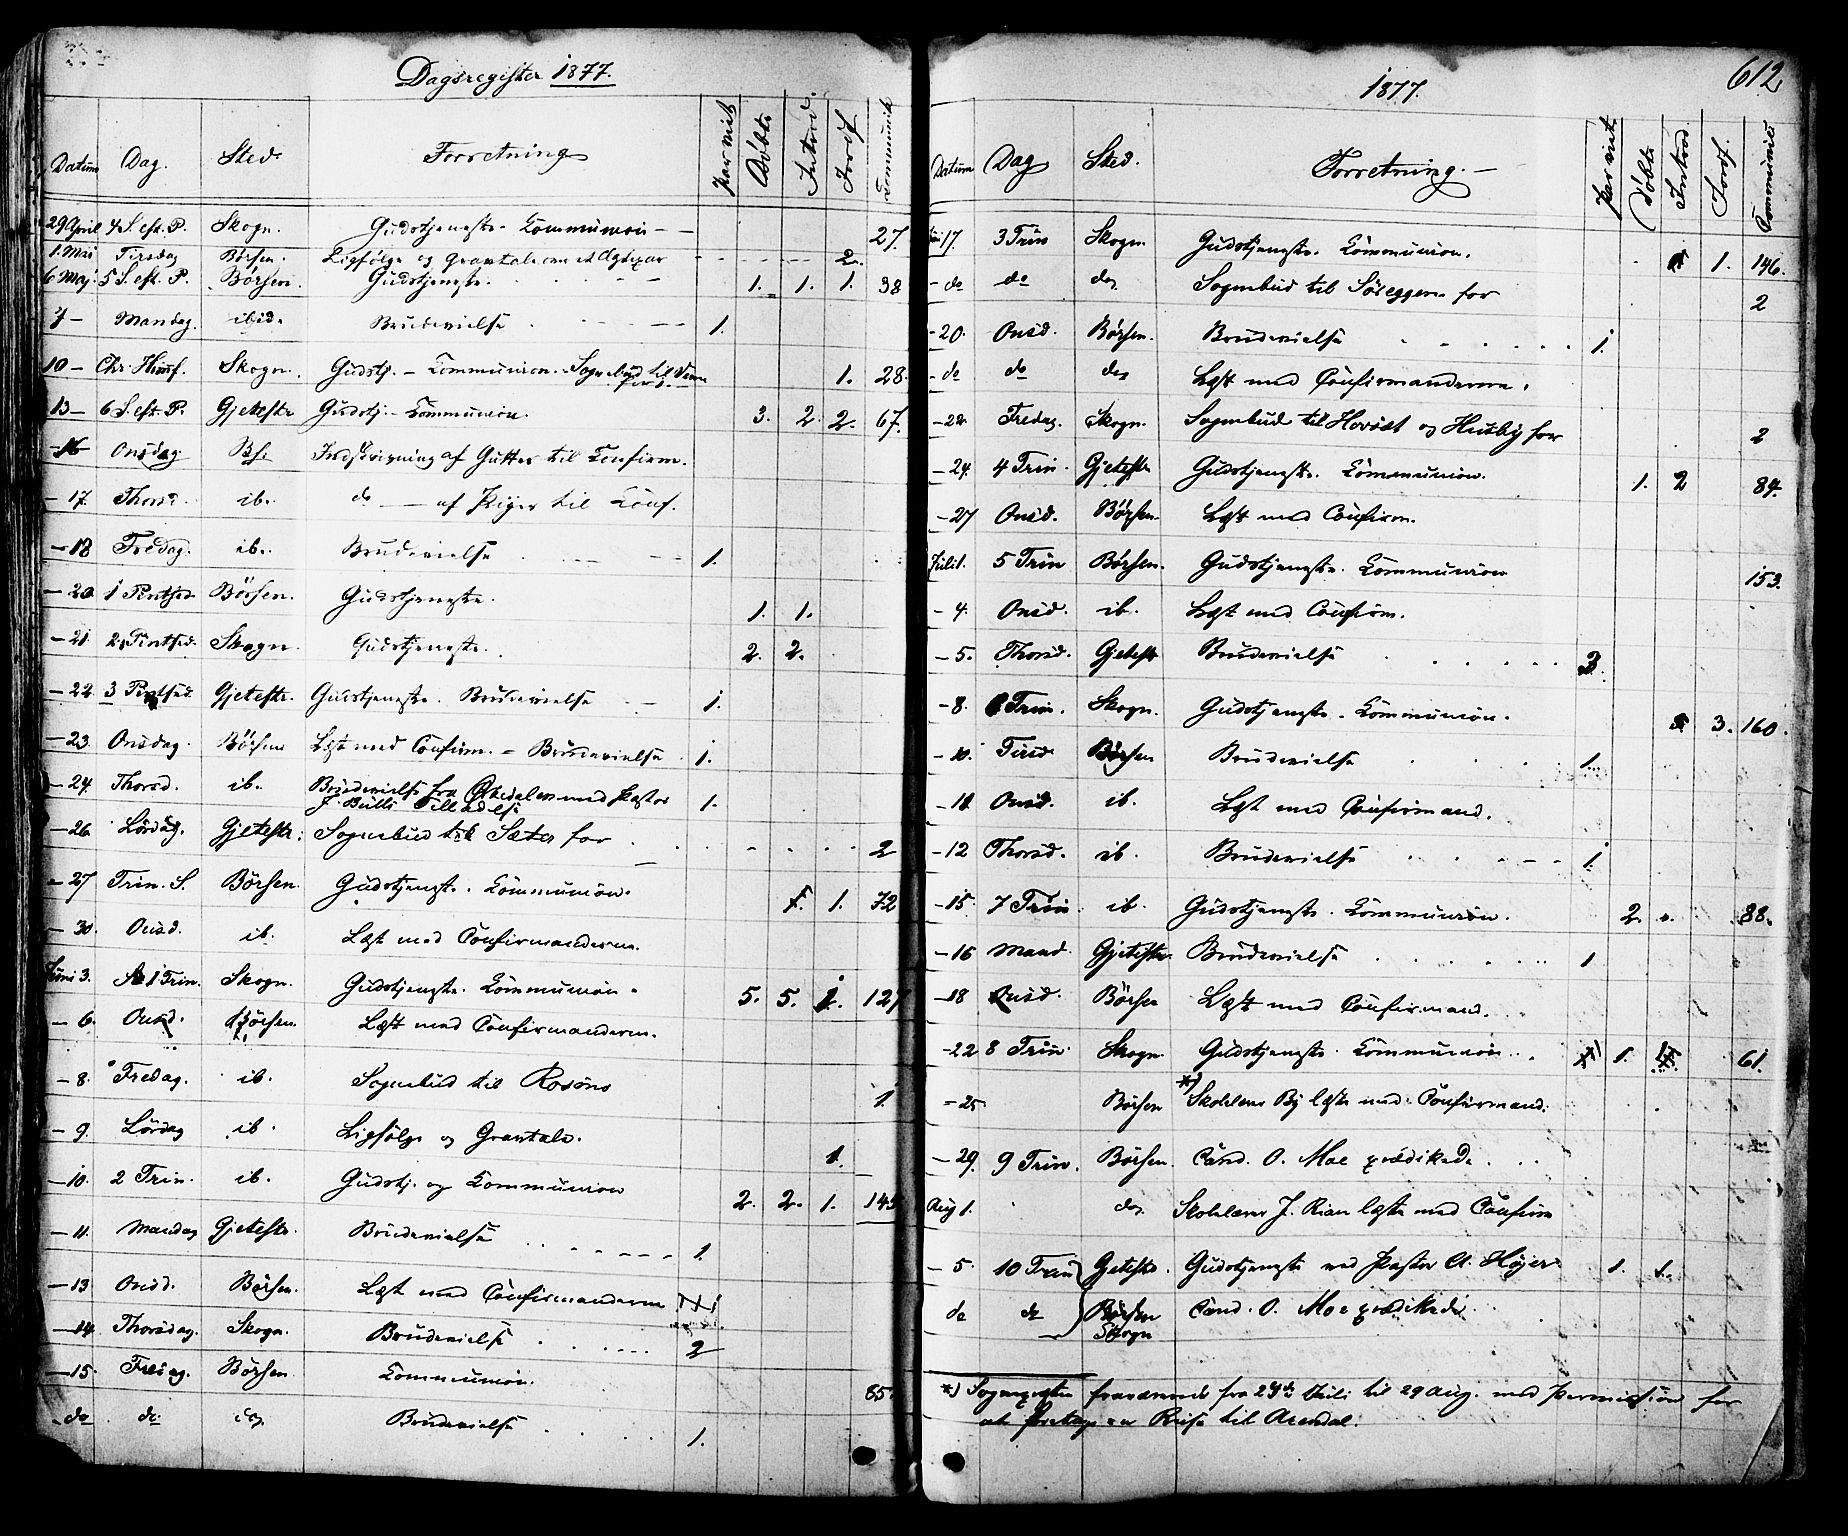 Dagsregister 1877.
Datum Dag. Sted. Forretning Par viet Døbte Introd. Jordf. Communic
29 April 4 S. eft. P. Skogn. Gudstjeneste - Communion - 27.
1. Mai Tirsdag Børsen. Ligfølge og Gravtale 2.
6 Maj. 5 S. eft. P. Børsen. Gudstjeneste. 1. 1. 1. 38
7 - Mandag. ibid. Brudevielse 1.
10 - Chr. Himf. Skogn. Gudstj. - Communion. - Sognebud til 1. 28.
13 - 6 S. eft. P. Gjetestr Gudstj. - Communion. 3. 2. 2. 67.
- 16 Onsdag Bsn Indskrivning af Gutter til Confirm.
- 17. Thorsd. ib. do - af Piger til Conf.
- 18 Fredag. ib. Brudevielse 1.
- 20 1 Pintsed. Børsen. Gudstjeneste. 1. 1.
- 21. 2. Pintsed. Skogn. Gudstjeneste. 2. 2.
- 22. 3 Pintsed. Gjetestr. Gudstjeneste. Brudevielse - 1.
- 23. Onsdag. Børsen Læst med Confirm. - Brudevielse 1.
- 24. Thorsd. ib. Brudevielse fra med Pastor
J. Bulls Tilladelse 1.
- 26. Lørdag. Gjetestr. Sognebud til Sæter for 2
- 27 Trin. S. Børsen. Gudstjenste. Communion. 1. 1. 72
- 30. Onsd. ib. Læst med Confirmanderne.
Juni 3. 1 Trin. Skogn. Gudstjenste. Communion. 5. 5. 1. 127
- 6. Onsd. Børsen. Læst med Confirmanderne.
- 8. Fredag. ib. Sognebud til Rosøns 1.
- 9. Lørdag ib. Ligfølge og Gravtale. 1.
- 10. 2 Trin. ib. Gudstj. og Communion 2. 2. 1. 145
- 11. Mandag Gjetestr. Brudevielse 1.
- 13 Onsd. Børsen. Læst med Confirmanderne
- 14. Thorsdag. Skogn. Brudevielse 2
- 15. Fredag. Børsen Communion. 85.
- do do. do. Brudevielse 1.
1877. 612
Datum Dag Sted. Forretning. - Par viet Døbte Introd. Jordf. Communic
Juni 17. 3 Trin Skogn. Gudstjeneste. Communion. 1. 146.
- do do do. Sognebud til for 2
- 20. Onsd. Børsen. Brudevielse 1.
- do do do. Læst med Confirmanderne.
- 22. Fredag. Skogn. Sognebud til Hovset og Husby for 2
- 24. 4 Trin. Gjetestr Gudstjeneste. Communion. 1. 2 84.
- 27 Onsd. Børsen. Læst med Confirm.
Juli 1. 5 Trin Børsen. Gudstjeneste. Communion 153.
- 4. Onsd. ib. Læst med Confirm.
- 5. Thorsd. Gjetestr Brudevielse 3.
- 8. 6 Trin. Skogn. Gudstjenste. Communion. 3. 160.
- 10. Tirsd Børsen Brudevielse 1.
- 11 Onsd. ib. Læst med Confirmand.
- 12 Thorsd. ib. Brudevielse 1.
- 15. 7 Trin. ib. Gudstjenste. Communion. 2. 88.
- 16 Mand. Gjetestr. Brudevielse 1
- 18 Onsd. Børsen Læst med Confirmand.
- 22 8 Trin. Skogn. Gudstjenste. Communion. 1. 61.
- 25 Børsen *) Skolelærer By læste med Confirmand.
- 29. 9 Trin. Børsen. Cand. O. Moe prædikede.
Aug 1. do. Skolelærer J. Rian læste med Confirm
- 5. 10 Trin Gjetestr. Gudstjeneste ved Pastor A. Højer 1. 1.
do do Børsen
Skogn Cand. O. Moe prædikede.
*) Sognepresten fraværende fra 24de Juli til 29 Aug. med Permission for
at foretage en Reise til Arendal.